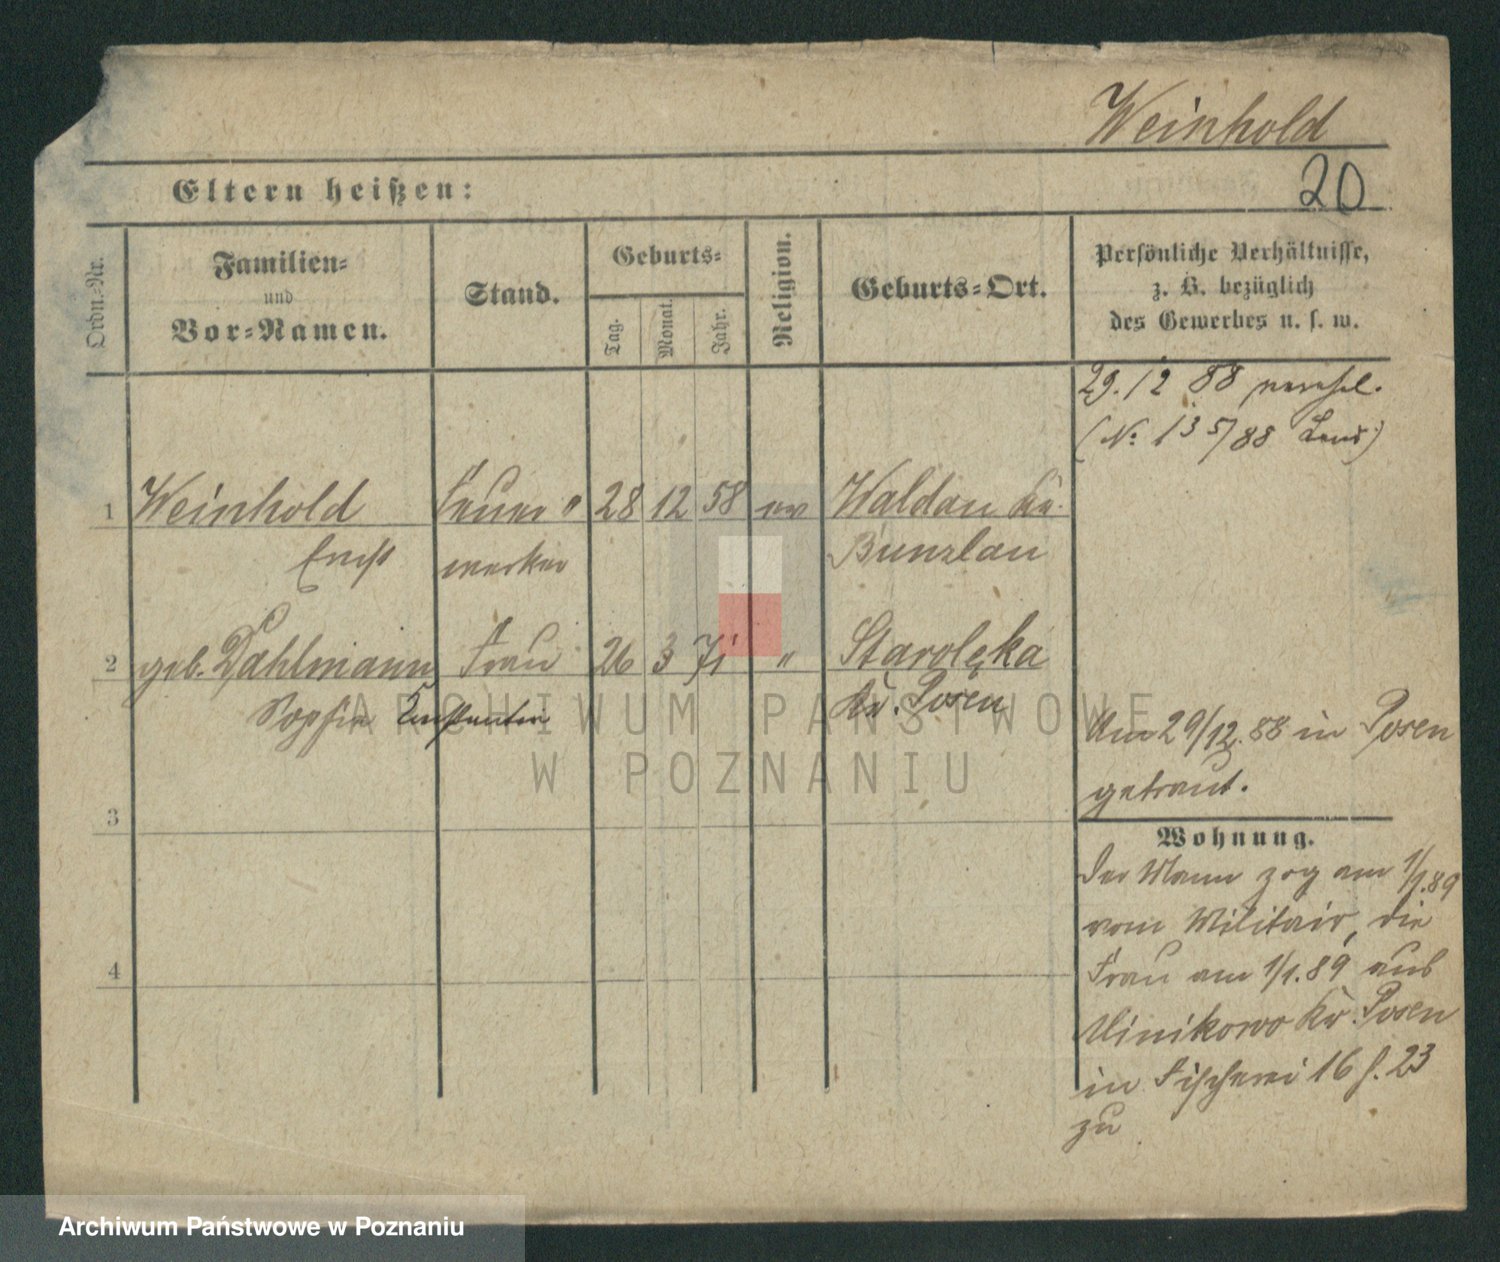 Weinhold
20
Eltern heißen:
Ordn.-Nr.
Familien-
und
Vor-Namen.
Stand.
Geburts-
Tag.
Monat.
Jahr.
Religion.
Geburts-Ort.
Persönliche Verhältnisse,
z. B. bezüglich
des Gewerbes u. s. w.
29.12 88 verehel.
(No 135/88 )
1 Weinhold Feuer " 28 12 58 ev Waldau Kr.
Ernst werker Bunzlau
2 geb. Dahlmann Frau 26 3 71 " Starolęka
Sophia Kr. Posen
Am 29/12. 88 in Posen
getraut.
3
Wohnung.
Der Mann zog am 1/1.89
vom Militair, die
Frau am 1/1.89 aus
4
Minikowo Kr. Posen
in Fischerei 16 f. 23
zu
ARCHIWUM PAŃSTWOWE
W POZNANIU
Archiwum Państwowe w Poznaniu